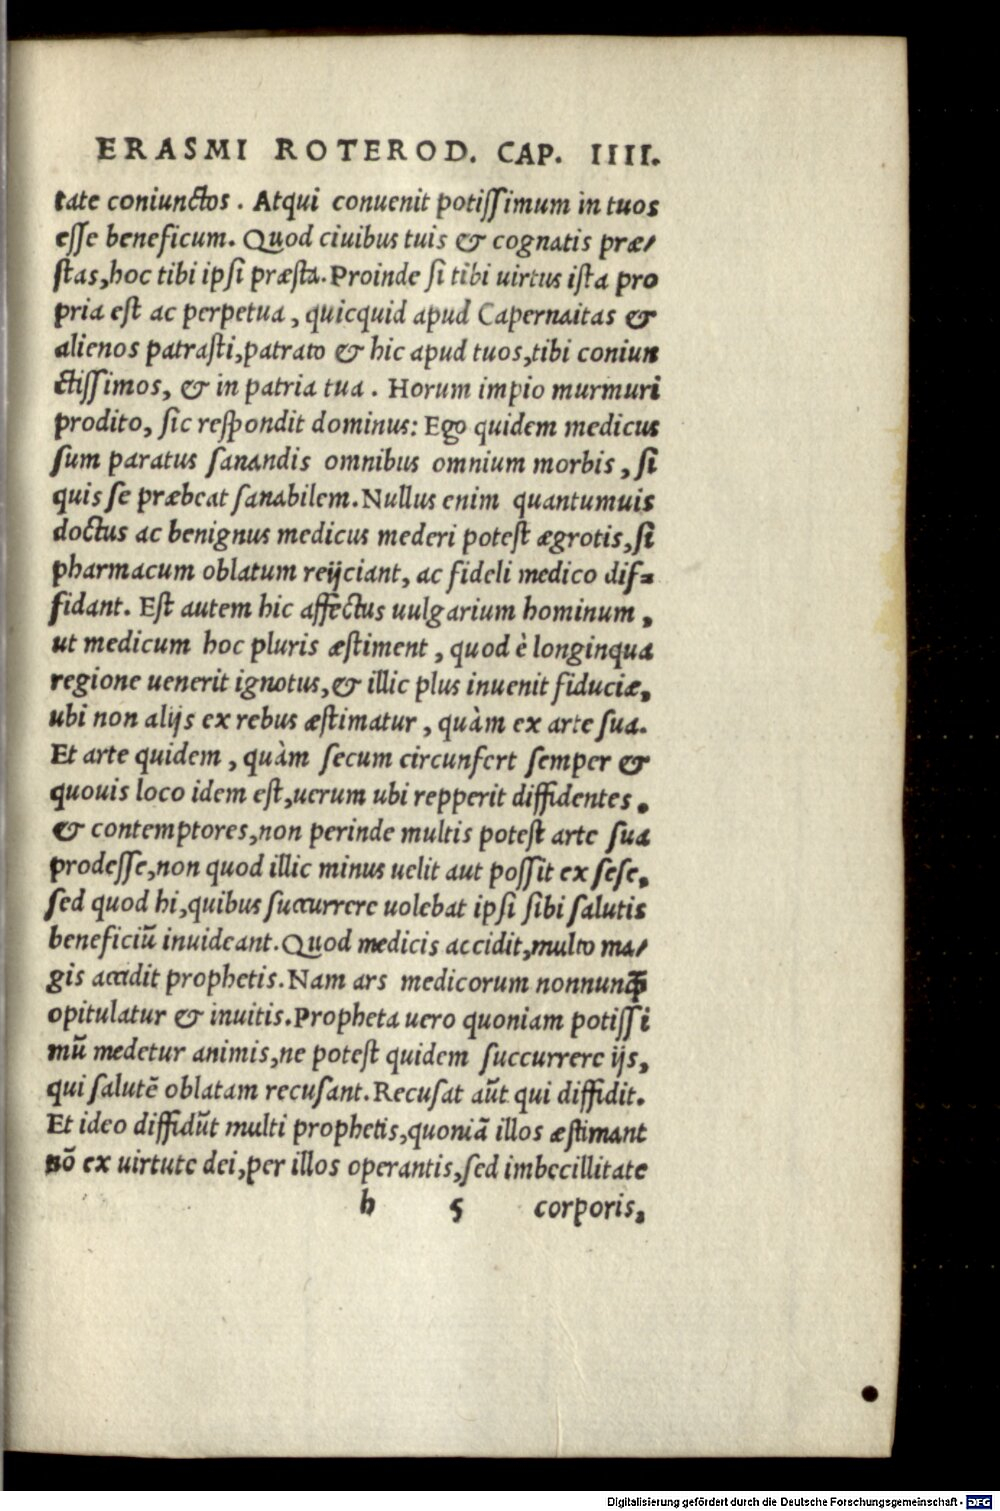 ERASMI ROTEROD. CAP. IIII.
tate coniunctos. Atqui conuenit potissimum in tuos
esse beneficum. Quod ciuibus tuis & cognatis præ/
stas, hoc tibi ipsi præsta. Proinde si tibi uirtus ista pro
pria est ac perpetua, quicquid apud Capernaitas &
alienos patrasti, patrato & hic apud tuos, tibi coniun
ctissimos, & in patria tua. Horum impio murmuri
prodito, sic respondit dominus: Ego quidem medicus
sum paratus sanandis omnibus omnium morbis, si
quis se præbeat sanabilem. Nullus enim quantumuis
doctus ac benignus medicus mederi potest ægrotis, si
pharmacum oblatum reijciant, ac fideli medico dif=
fidant. Est autem hic affectus uulgarium hominum,
ut medicum hoc pluris æstiment, quod è longinqua
regione uenerit ignotus, & illic plus inuenit fiduciæ,
ubi non alijs ex rebus æstimatur, quàm ex arte sua.
Et arte quidem, quàm secum circunfert semper &
quouis loco idem est, uerum ubi repperit diffidentes.
& contemptores, non perinde multis potest arte sua
prodesse, non quod illic minus uelit aut possit ex sese,
sed quod hi, quibus succurrere uolebat ipsi sibi salutis
beneficiũ inuideant. Quod medicis accidit, multo ma/
gis accidit prophetis. Nam ars medicorum nonnunꝗ̃
opitulatur & inuitis. Propheta uero quoniam potissi
mũ medetur animis, ne potest quidem succurrere ijs,
qui salutẽ oblatam recusant. Recusat aũt qui diffidit.
Et ideo diffidũt multi prophetis, quoniã illos æstimant
nõ ex uirtute dei, per illos operantis, sed imbecillitate
b 5 corporis,
Digitalisierung gefördert durch die Deutsche Forschungsgemeinschaft - DFG